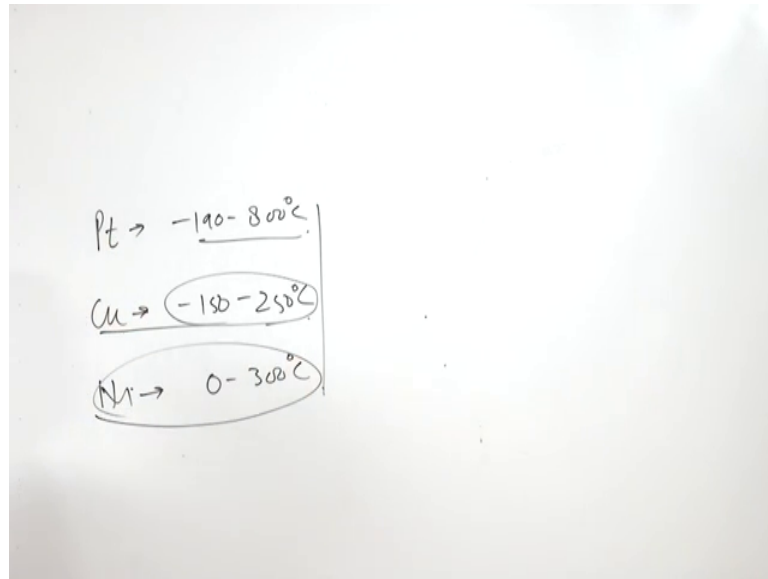 Pt → -190 - 800°C
Cu → -150 - 250°C
Ni → 0 - 300°C